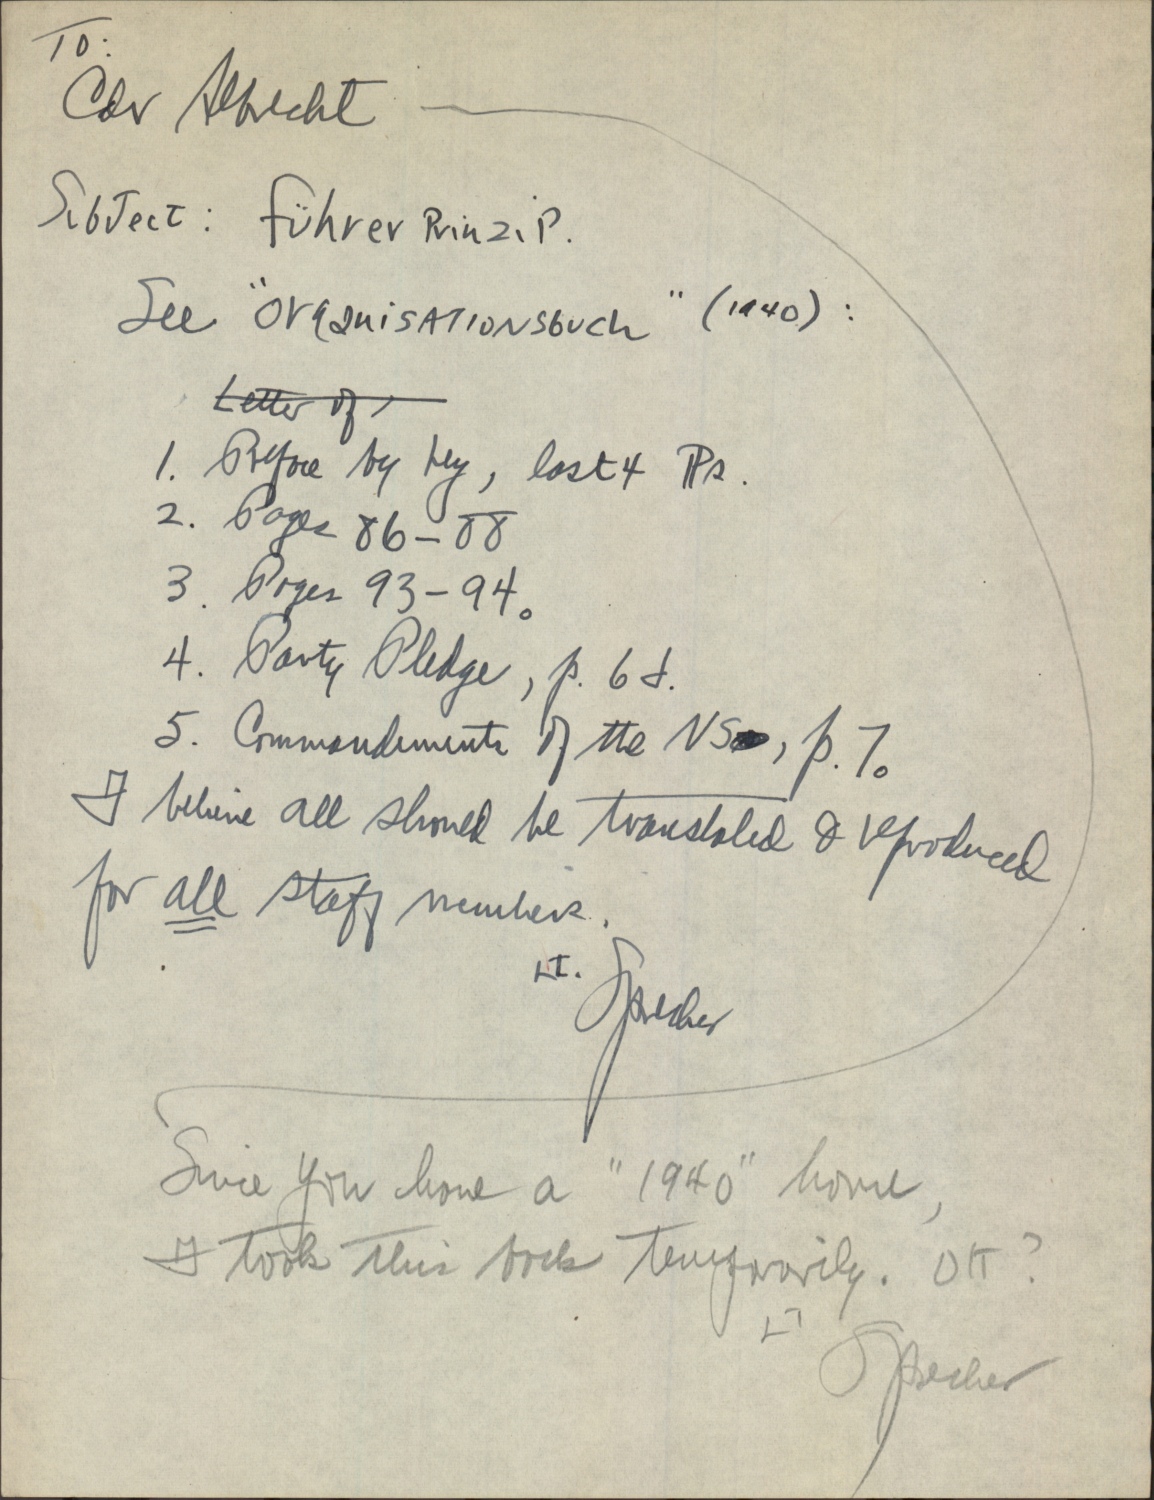 To:
Cdr Albrecht
Subject: Führer Prinzip.
See "Organisationsbuch" (1940):
Letter of
1. Preface by Ley, last 4 PPs.
2. Pages 86-88
3. Pages 93-94.
4. Party Pledge, p. 6d.
5. Commandments of the NS, p. 7.
I believe all should be translated & reproduced
for all staff members.
Lt. Sprecher
Since you have a "1940"
I took this back temporarily. OK?
Lt Sprecher